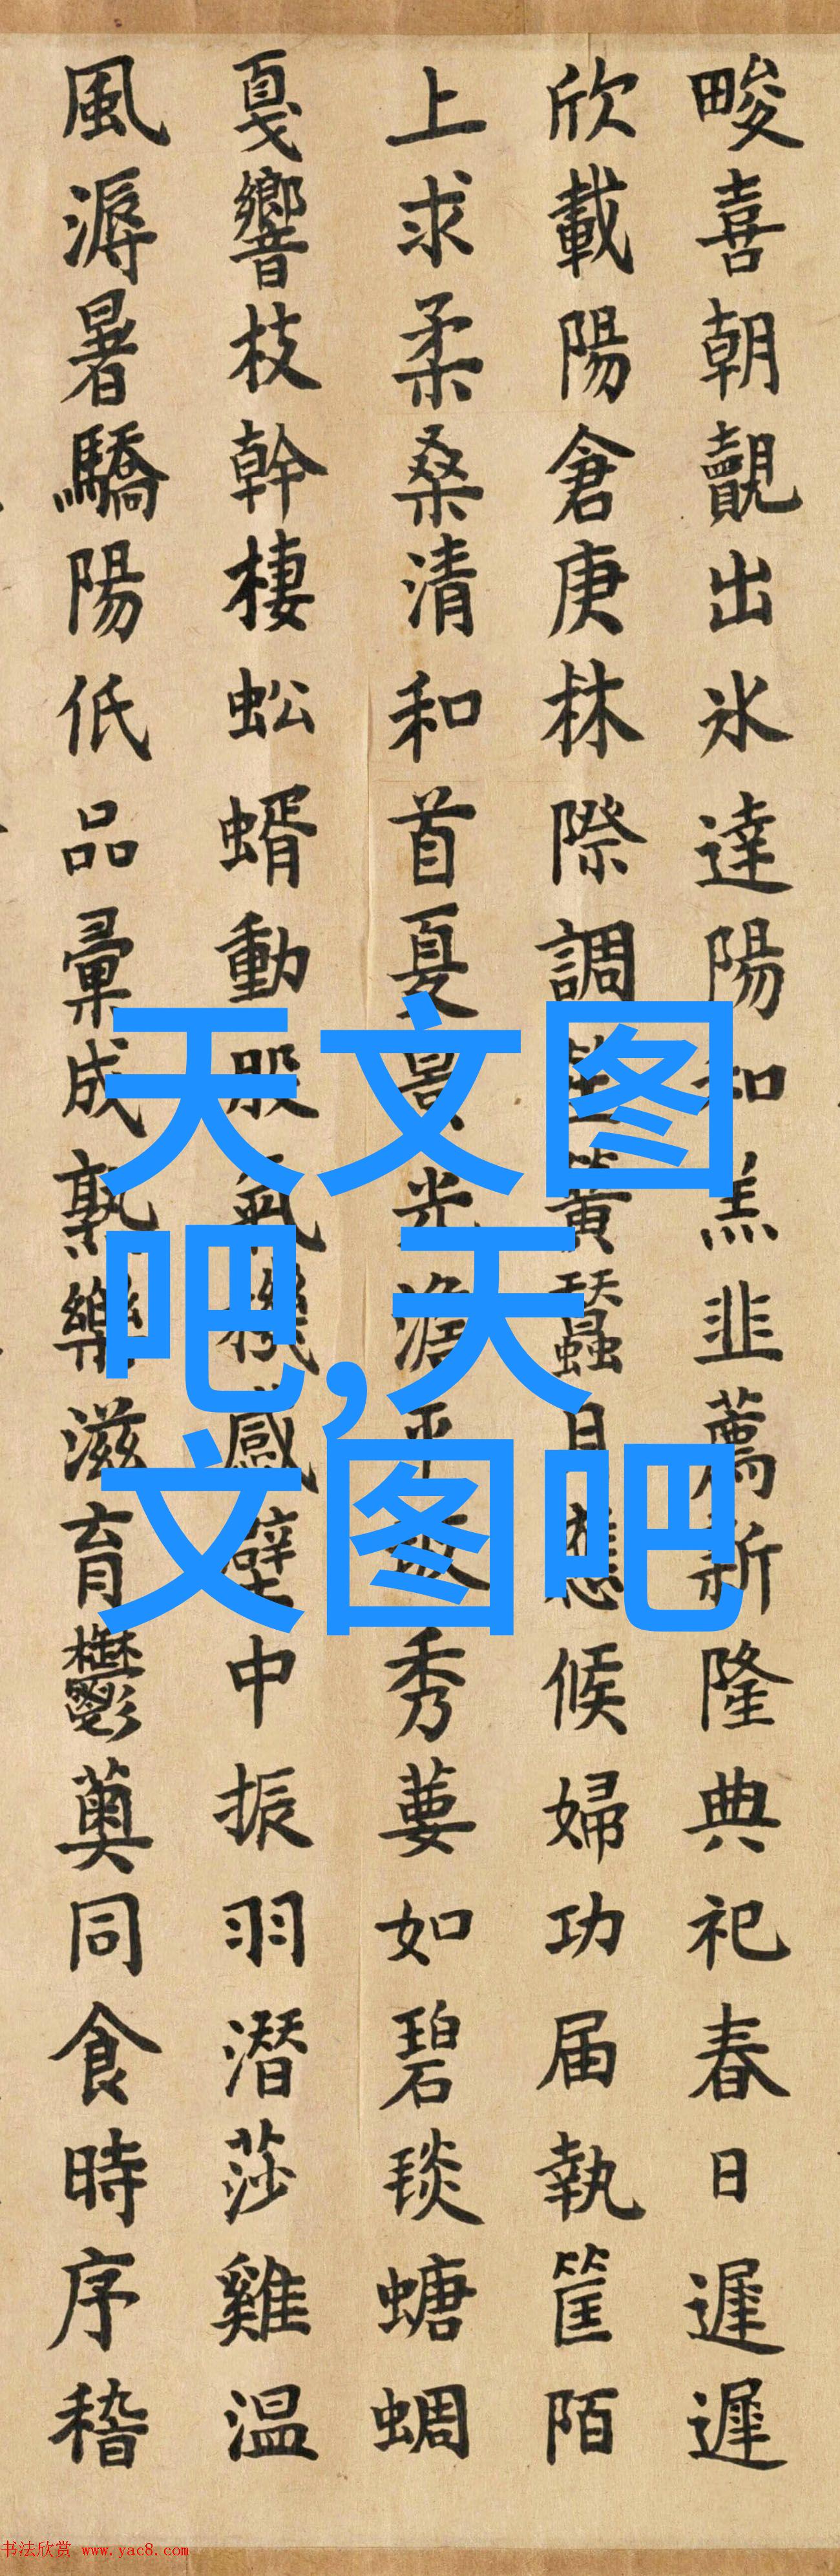 畯喜朝覿出氷達陽和羔韭薦新隆典祀春日遲遲
欣載陽倉庚林際調簧蠶月應候婦功届執筐陌
上求柔桑清和首夏景光澹平秀葽如碧琰螗蜩
戛響枝幹棲蚣蝑動股氣機感壁中振羽潛莎雞温
風溽暑驕陽低品彙成熟樂滋育鬱薁同食時序稽
天文图
吧,天
文图吧
书法欣赏 www.yac8.com